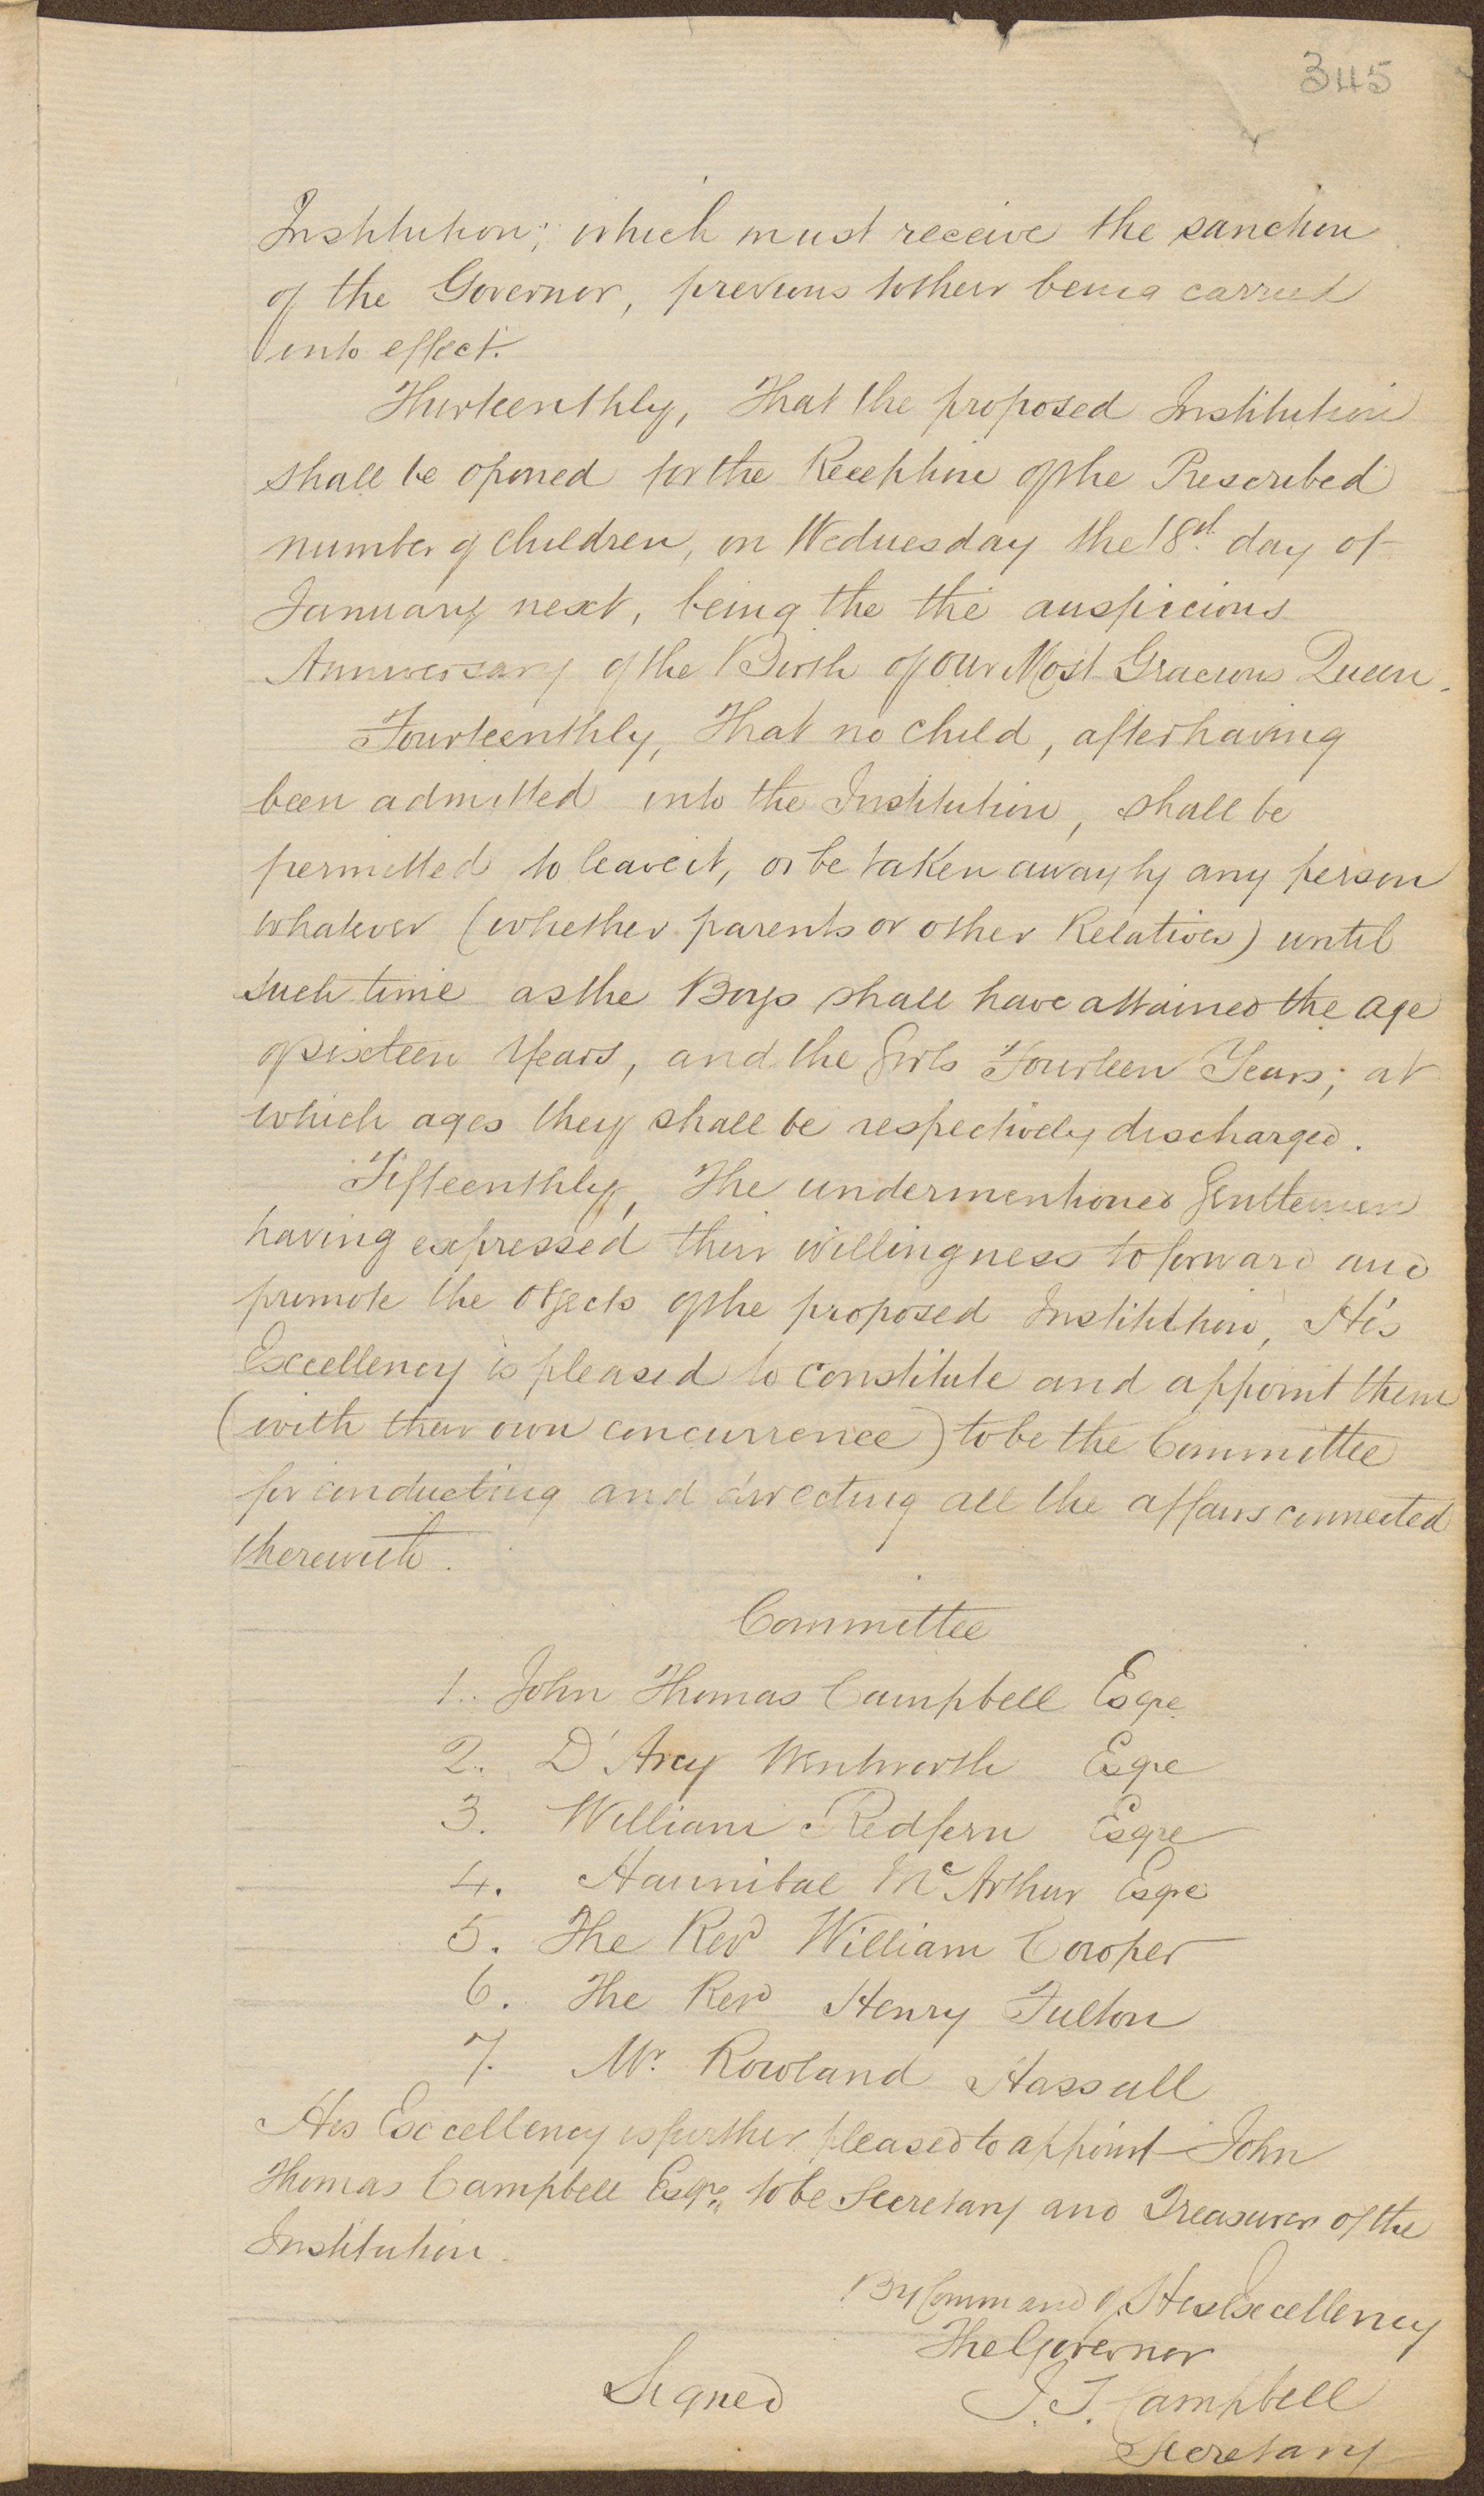 345
Institution; which must receive the sanction
of the Governor, previous to their being carried
into effect.
Thirteenthly, That the proposed Institution
shall be opened for the Reception of the Prescribed
number of children, on Wednesday the 18th day of
January next, being the the auspicious
Anniversary of the Birth of our Most Gracious Queen.
Fourteenthly, That no child, after having
been admitted into the Institution, shall be
permitted to leave it, or be taken away by any person
whatever (whether parents or other Relatives) until
such time as the Boys shall have attained the age
of sixteen Years, and the Girls Fourteen Years; at
which ages they shall be respectively discharged.
Fifteenthly, The undermentioned Gentlemen
having expressed their willingness to forward and
promote the objects of the proposed Institution, His
Excellency is pleased to constitute and appoint them
(with their own concurrence) to be the Committee
for conducting and directing all the affairs connected
therewith.
Committee
1. John Thomas Campbell Esqre
2. D'Arcy Wentworth Esqre
3. William Redfern Esqre
4. Hannibal McArthur Esqre
5. The Revd William Cowper
6. The Revd Henry Fulton
7. Mr. Rowland Hassall
His Excellency is further pleased to appoint John
Thomas Campbell Esqre, to be Secretary and Treasurer of the
Institution.
By Command of His Excellency
The Governor
Signed J. T. Campbell
Secretary